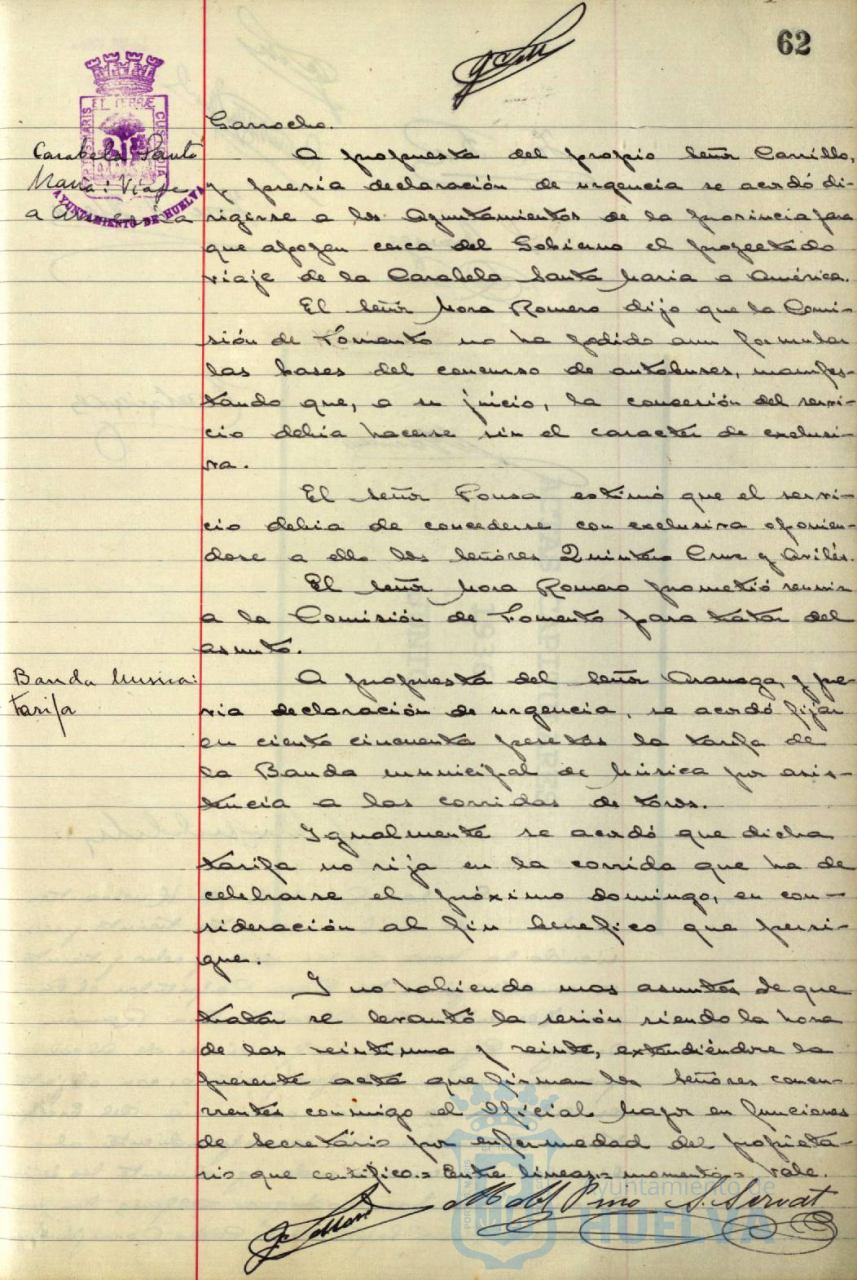 62
Garrocho.
Carabela Santa
Maria: Viaje
a America
AYUNTAMIENTO DE HUELVA
A propuesta del propio Señor Carrillo,
y previa declaración de urgencia se acordó di-
rigirse a los Ayuntamientos de la provincia para
que apoyen cerca del Gobierno el proyectado
viaje de la Carabela Santa Maria a América.
El Señor Mora Romero dijo que la Comi-
sión de Fomento no ha podido aun formular
las bases del concurso de autobuses, manifes-
tando que, a su juicio, la concesión del servi-
cio debia hacerse sin el caracter de exclusi-
va.
El Señor Pousa estimó que el servi-
cio debia de concederse con exclusiva oponien-
dose a ello los Señores Quintero Cruz y Avilés.
El Señor Mora Romero prometió reunir
a la Comisión de Fomento para tratar del
asunto.
Banda Musica:
tarifa
A propuesta del Señor, y pre-
via declaración de urgencia, se acordó fijar
en ciento cincuenta pesetas la tarifa de
la Banda municipal de Música por asis-
tencia a las corridas de toros.
Igualmente se acordó que dicha
tarifa no rija en la corrida que ha de
celebrarse el próximo domingo, en con-
sideración al fin benefico que persi-
gue.
Y no habiendo mas asuntos de que
tratar se levantó la sesión siendo la hora
de las veintiuna y veinte, extendiéndose la
presente acta que firman los Señores concu-
rrentes conmigo el Oficial Mayor en funciones
de Secretário por enfermedad del propieta-
rio que certifico.= Entre lineas= momentos= Vale.
Ayuntamiento de
HUELVA
S. Servat